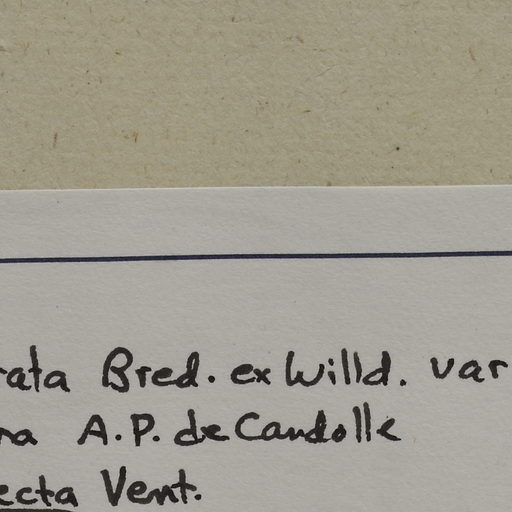 rata Bred. ex Willd. var
ra A.P. de Candolle
ecta Vent.